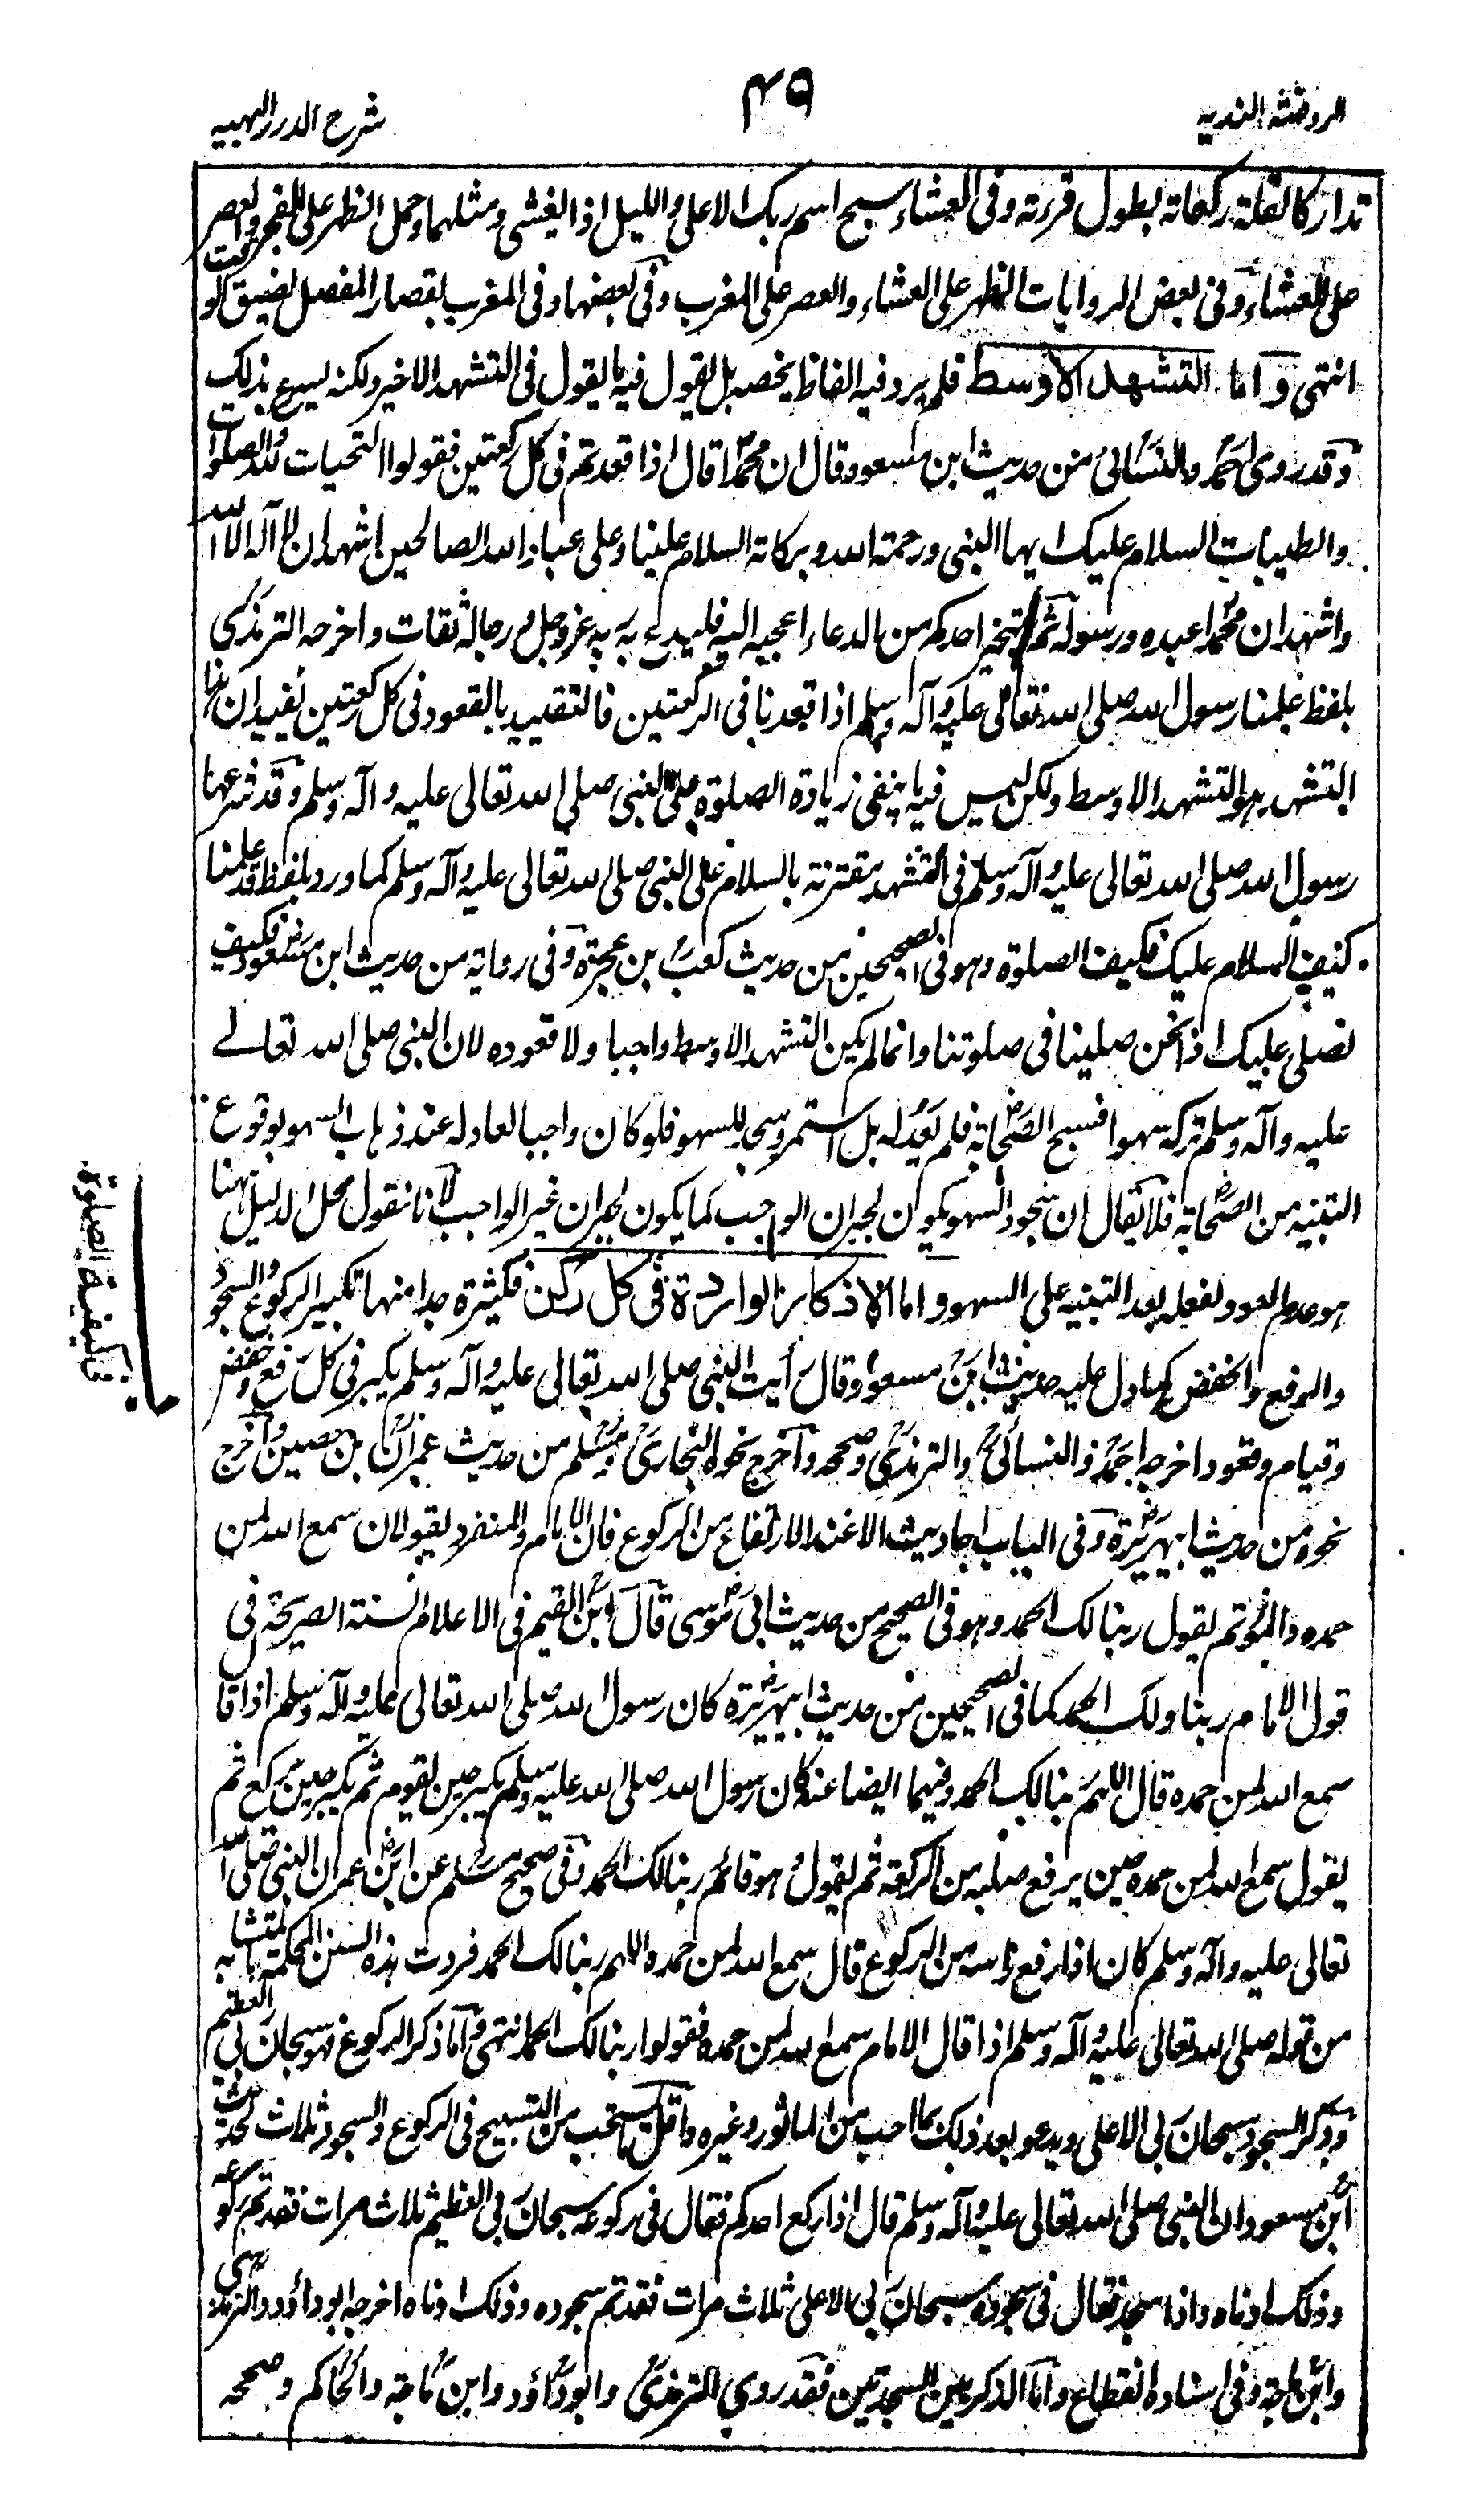 الروضة الندية
۴۹
شرح الدرر البهية
تداركا لقلة ركعاته بطول قرءته وفى العشاء سبح اسم ربك الاعلى والليل اذا يغشى ومثلهما وحمل الظهر على الفجر والعصر
على العشاء وفى بعض الروايات الظهر على العشاء والعصر على المغرب وفى بعضها وفى المغرب بقصار المفصل لضيق الوقت
انتهى واما التشهد الاوسط فلم يرد فيه الفاظ يخصه بل يقول فيه ما يقول فى التشهد الاخير ولكنه يسرع بذلك
وقد روى احمد والنسائى من حديث ابن مسعود قال ان محمدا قال اذا قعدتم فى كل ركعتين فقولوا التحيات لله والصلوات
والطيبات السلام عليك ايها النبى ورحمة الله وبركاته السلام علينا وعلى عباد الله الصالحين اشهد ان لا اله الا الله
واشهد ان محمدا عبده ورسوله ثم ليتخير احدكم من الدعاء اعجبه اليه فليدع به ربه عز وجل ورجاله ثقات واخرجه الترمذى
بلفظ علمنا رسول الله صلى الله تعالى عليه وآله وسلم اذا قعدنا فى الركعتين فالتقييد بالقعود فى كل ركعتين يفيد ان هذا
التشهد هو التشهد الاوسط ولكن ليس فيه ما ينفى زيادة الصلوة على النبى صلى الله تعالى عليه وآله وسلم وقد شرعها
رسول الله صلى الله تعالى عليه وآله وسلم فى التشهد مقترنة بالسلام على النبى صلى الله تعالى عليه وآله وسلم كما ورد بلفظ قد علمنا
كيف السلام عليك فكيف الصلوة وهو فى الصحيحين من حديث كعب بن عجرة وفى رواية من حديث ابن مسعود فكيف
نصلى عليك اذا نحن صلينا فى صلوتنا وانما لم يكن التشهد الاوسط واجبا ولا قعوده لان النبى صلى الله تعالے
عليه وآله وسلم تركه سهوا فسبح الصحابة فلم يعد له بل استمر وسجد للسهو فلو كان واجبا لعاد له عند ذهاب السهو بوقوع
التنبيه من الصحابة فلا يقال ان سجود السهو يكون لجبران الواجب كما يكون لجبران غير الواجب لانا نقول محل الدليل ههنا
هو عدم العود لفعله بعد التنبيه على السهو واما الاذكار الواردة فى كل ركن فكثيرة جدا منها تكبير الركوع والسجود
والرفع والخفض كما دل عليه حديث ابن مسعود قال رأيت النبى صلى الله تعالى عليه وآله وسلم يكبر فى كل رفع وخفض
وقيام وقعود اخرجه احمد والنسائى والترمذى وصححه واخرج نحوه البخارى ومسلم من حديث عمران بن حصين واخرج
نحوه من حديث ابيهريرة وفى الباب احاديث الا عند الارتفاع من الركوع فان الامام والمنفرد يقولان سمع الله لمن
حمده والمؤتم يقول ربنا لك الحمد وهو فى الصحيح من حديث ابى موسى قال ابن القيم فى الاعلام السنة الصريحة فى
قول الامام ربنا ولك الحمد كما فى الصحيحين من حديث ابيهريرة كان رسول الله صلى الله تعالى عليه وآله وسلم اذا قا
سمع الله لمن حمده قال اللهم ربنا لك الحمد وفيهما ايضا عنه كان رسول الله صلى الله عليه وسلم يكبر حين يقوم ثم يكبر حين يركع ثم
يقول سمع الله لمن حمده حين يرفع صلبه من الركعة ثم يقول وهو قائم ربنا لك الحمد وفى صحيح مسلم عن ابن عمر ان النبى صلى الله
تعالى عليه وآله وسلم كان اذا رفع راسه من الركوع قال سمع الله لمن حمده اللهم ربنا لك الحمد فردت هذه السنن المحكمة بالمتشابه
من قوله صلى الله تعالى عليه وآله وسلم اذا قال الامام سمع الله لمن حمده فقولوا ربنا لك الحمد انتهى واما ذكر الركوع فهو سبحان ربى العظيم
وذكر السجود سبحان ربى الاعلى ويدعو بعد ذلك بما احب من الماثور وغيره واقل ما يستحب من التسبيح فى الركوع والسجود ثلاث لحديث
ابن مسعود ان النبى صلى الله تعالى عليه وآله وسلم قال اذا ركع احدكم فقال فى ركوعه سبحان ربى العظيم ثلاث مرات فقد تم ركوعه
وذلك ادناه واذا سجد فقال فى سجوده سبحان ربى الاعلى ثلاث مرات فقد تم سجوده وذلك ادناه اخرجه ابو داؤد والترمذى
وابن ماجة وفى اسناده انقطاع واما الذكر بين السجدتين فقد روى الترمذى وابو داؤد وابن ماجة والحاكم وصححه
كيفية الصلوة